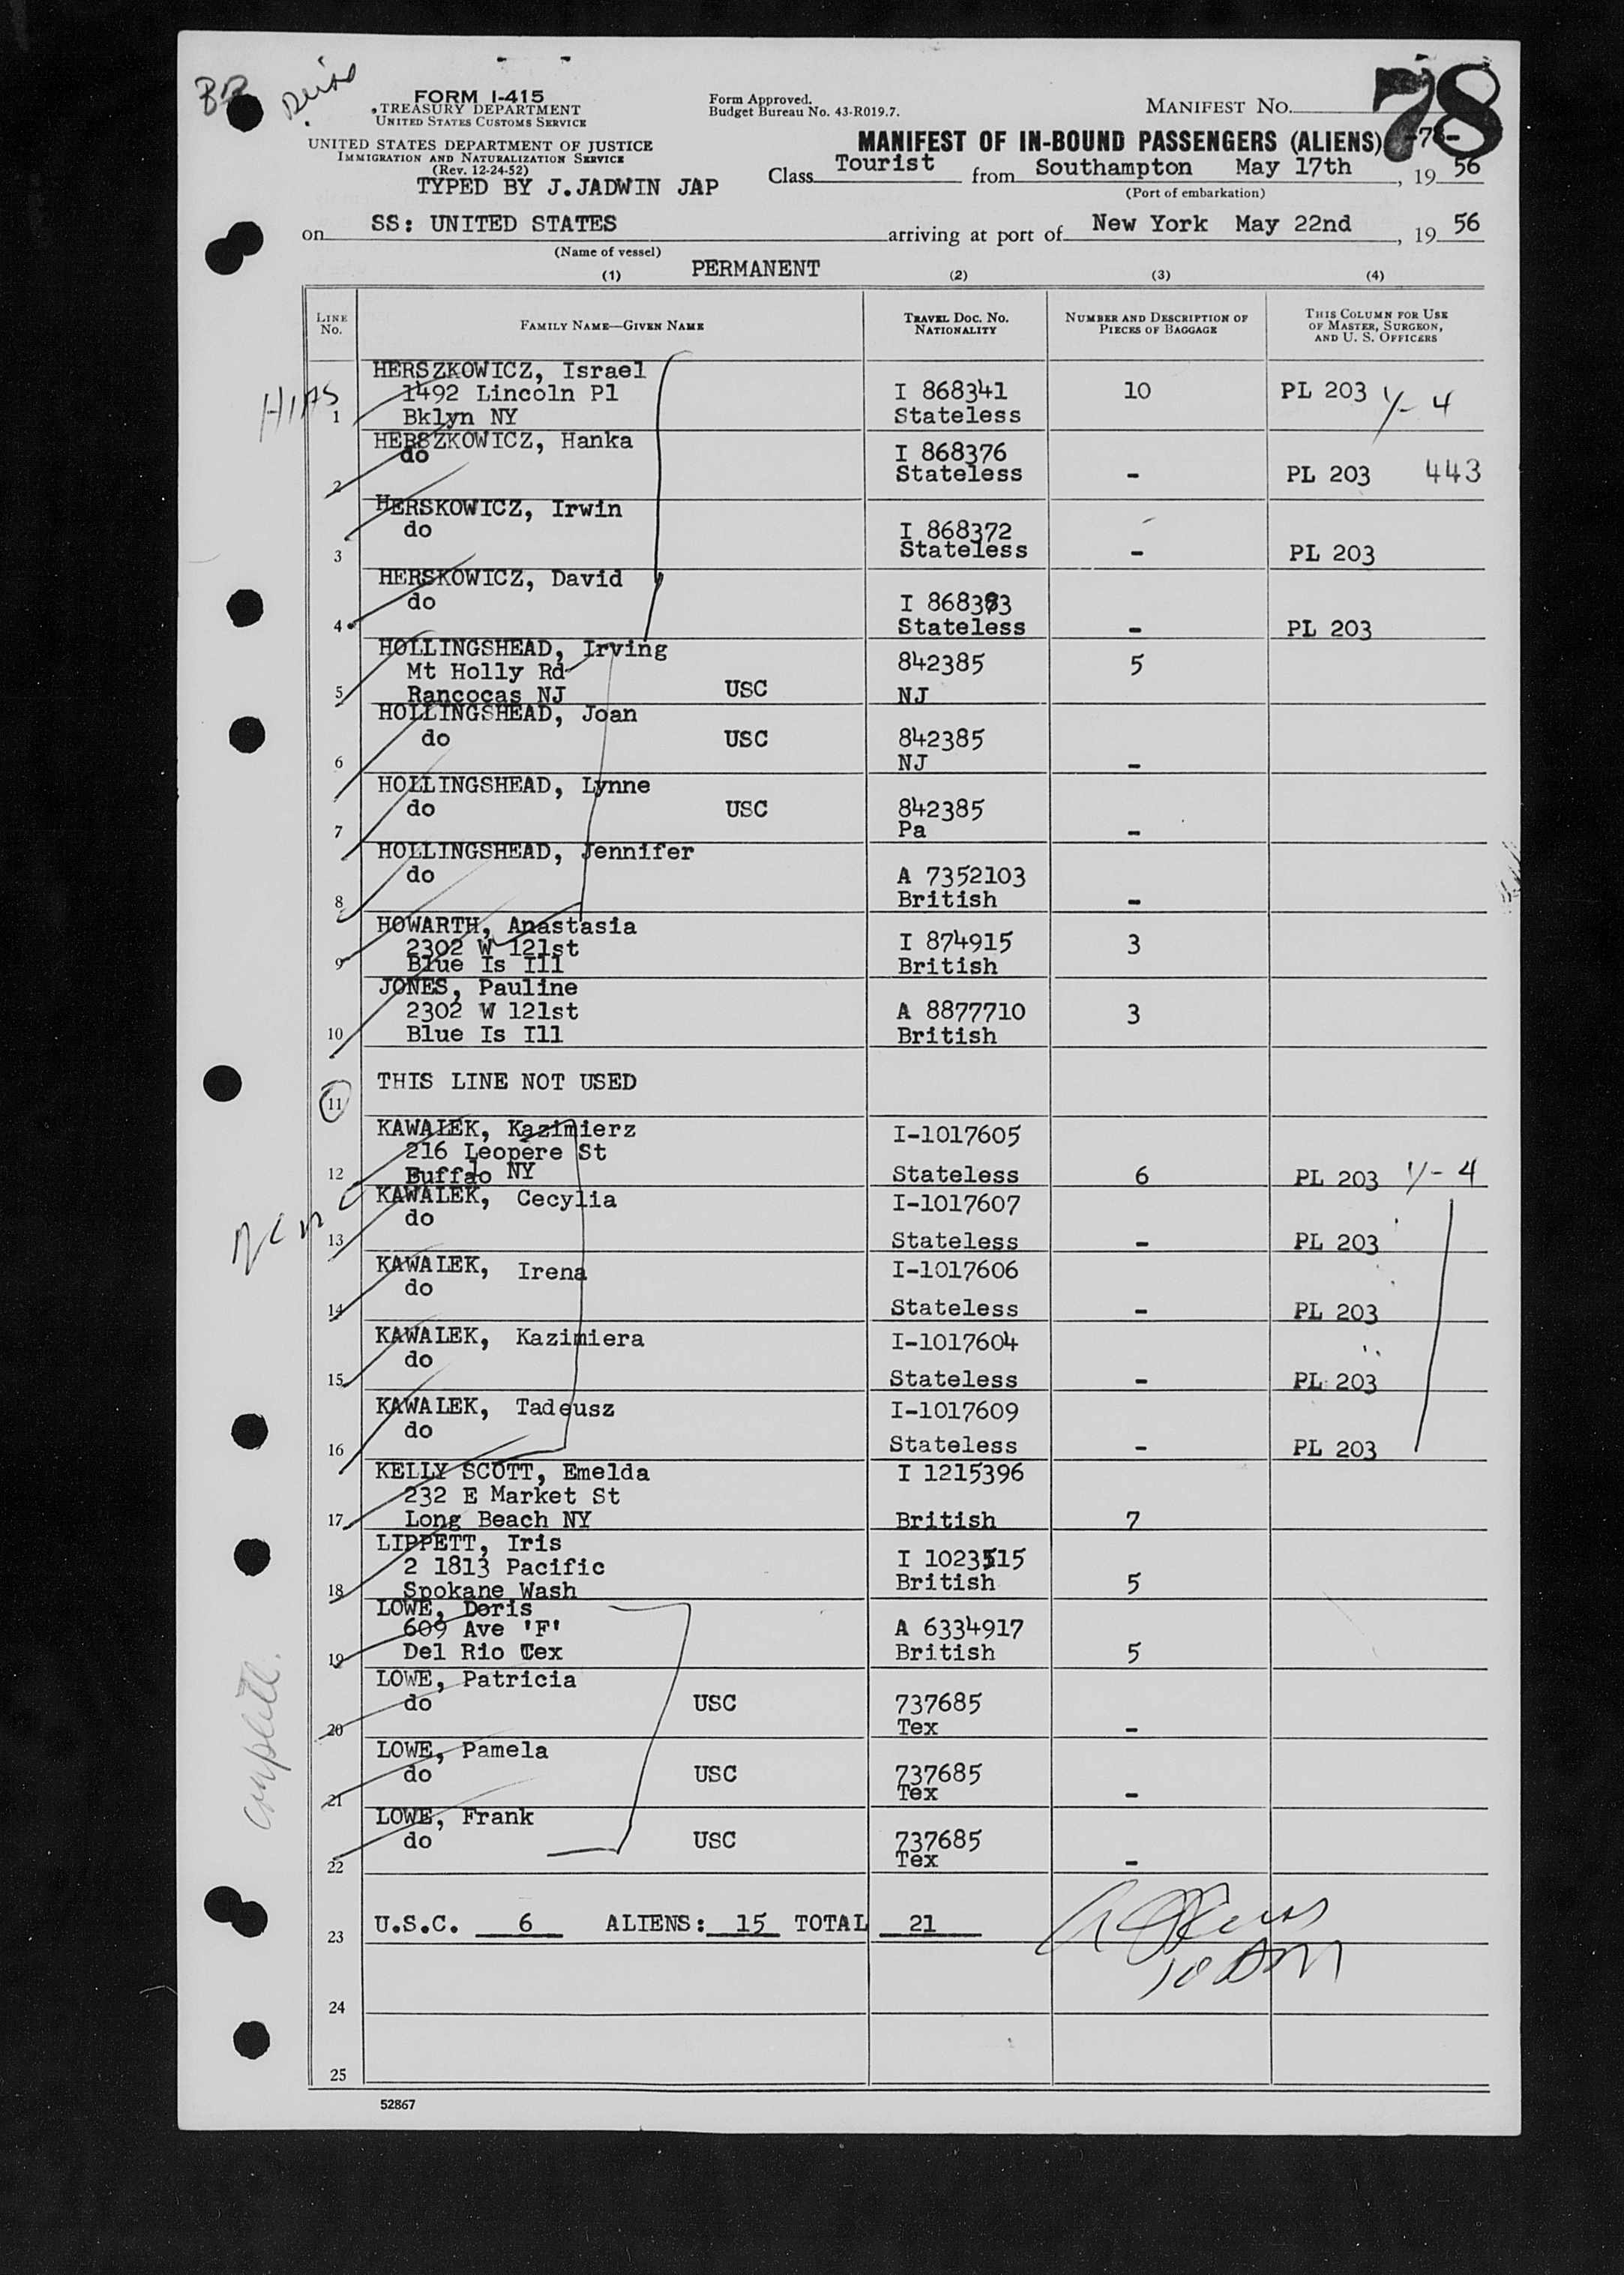 78
FORM I-415
TREASURY DEPARTMENT
UNITED STATES CUSTOMS SERVICE
UNITED STATES DEPARTMENT OF JUSTICE
IMMIGRATION AND NATURALIZATION SERVICE
(Rev. 12-24-52)
TYPED BY J.JADWIN JAP
Form Approved.
Budget Bureau No. 43-R019.7.
MANIFEST NO.
MANIFEST OF IN-BOUND PASSENGERS (ALIENS) -78-
Class Tourist from Southampton May 17th, 19 56
(Port of embarkation)
on SS: UNITED STATES arriving at port of New York May 22nd, 19 56
(Name of vessel)
(1) PERMANENT (2) (3) (4)
LINE No. FAMILY NAME—GIVEN NAME TRAVEL DOC. NO. NATIONALITY NUMBER AND DESCRIPTION OF PIECES OF BAGGAGE THIS COLUMN FOR USE OF MASTER, SURGEON, AND U. S. OFFICERS
HERSZKOWICZ, Israel
HIAS 1492 Lincoln Pl I 868341 10 PL 203 1/- 4
1 Bklyn NY Stateless
HERSZKOWICZ, Hanka
do I 868376
2 Stateless - PL 203 443
HERSKOWICZ, Irwin
do I 868372
3 Stateless - PL 203
HERSKOWICZ, David
do I 868373
4 Stateless - PL 203
HOLLINGSHEAD, Irving
Mt Holly Rd 842385 5
5 Rancocas NJ USC NJ
HOLLINGSHEAD, Joan
do USC 842385
6 NJ -
HOLLINGSHEAD, Lynne
do USC 842385
7 Pa -
HOLLINGSHEAD, Jennifer
do A 7352103
8 British -
HOWARTH, Anastasia
2302 W 121st I 874915 3
9 Blue Is Ill British
JONES, Pauline
2302 W 121st A 8877710 3
10 Blue Is Ill British
THIS LINE NOT USED
11
KAWALEK, Kazimierz I-1017605
216 Leopere St
12 Buffao NY Stateless 6 PL 203 1/- 4
KAWALEK, Cecylia I-1017607
do
13 Stateless - PL 203
KAWALEK, Irena I-1017606
do
14 Stateless - PL 203
KAWALEK, Kazimiera I-1017604
do
15 Stateless - PL 203
KAWALEK, Tadeusz I-1017609
do
16 Stateless - PL 203
KELLY SCOTT, Emelda I 1215396
232 E Market St
17 Long Beach NY British 7
LIPPETT, Iris
2 1813 Pacific I 1023515
18 Spokane Wash British 5
LOWE, Doris
609 Ave 'F' A 6334917
19 Del Rio Tex British 5
LOWE, Patricia
do USC 737685
20 Tex -
LOWE, Pamela
do USC 737685
21 Tex -
LOWE, Frank
do USC 737685
22 Tex -
complete.
23 U.S.C. 6 ALIENS: 15 TOTAL 21
24
25
52867